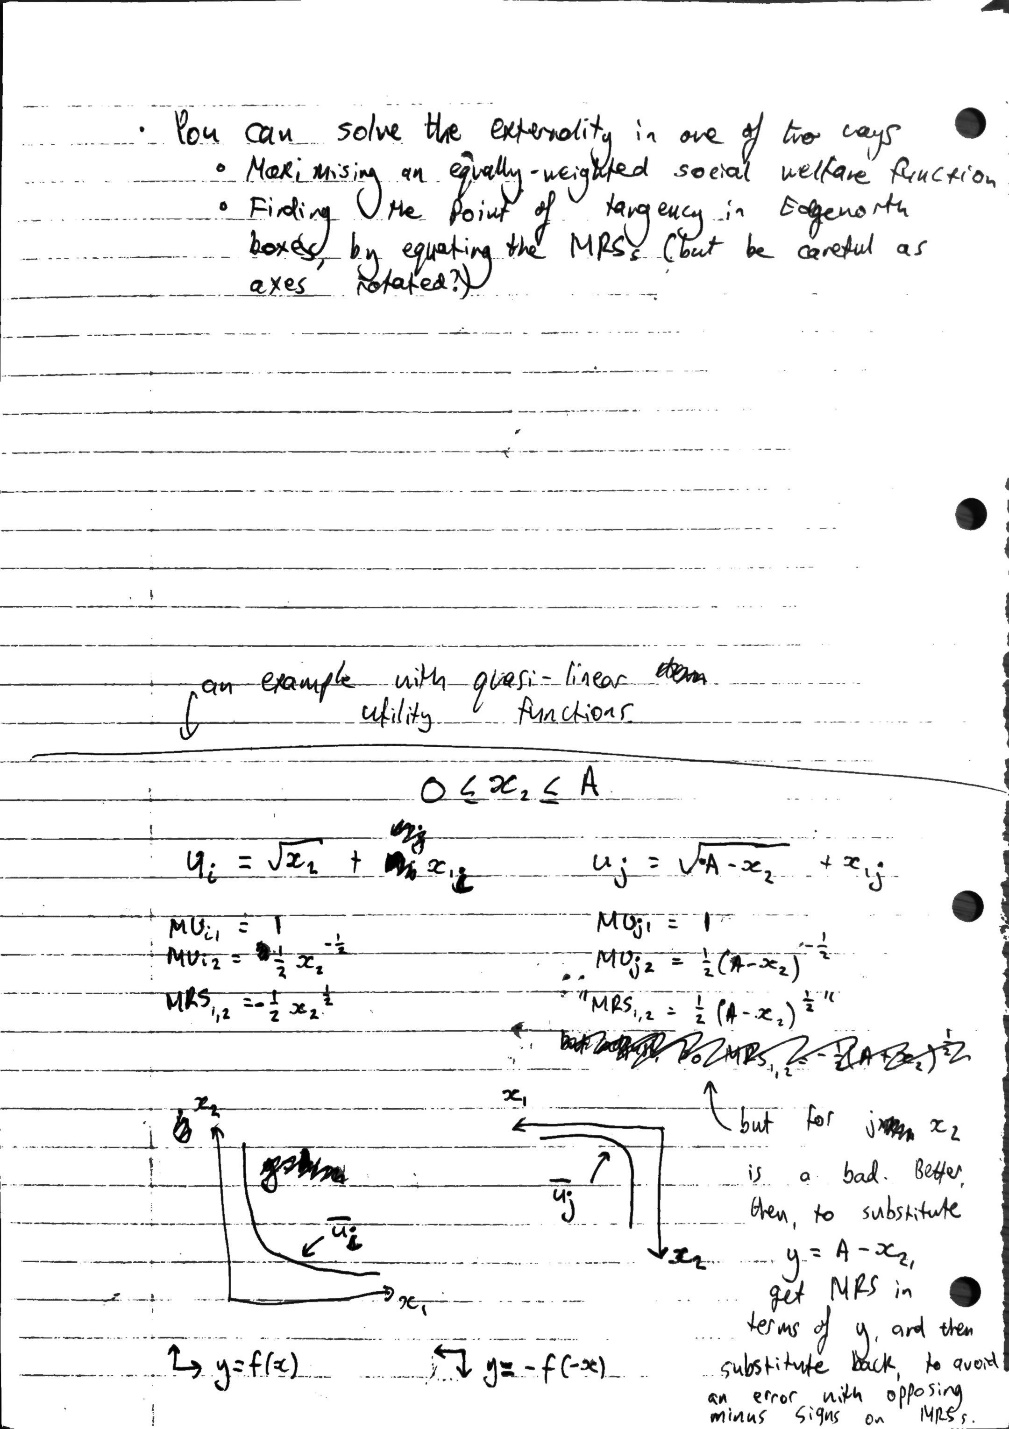 · You can solve the externality in one of two ways
∘ Maximising an equally-weighted social welfare function
∘ Finding the point of tangency in Edgeworth
boxes, by equating the MRSs (but be careful as
axes rotated?)
an example with quasi-linear
utility functions.
0 ≤ x₂ ≤ A
uᵢ = √x₂ + x₁ᵢ
uⱼ = √(A - x₂) + x₁ⱼ
MUᵢ₁ = 1
MUᵢ₂ = ½ x₂^(-½)
MRS₁,₂ = -½ x₂^½
MUⱼ₁ = 1
MUⱼ₂ = ½ (A-x₂)^(-½)
∴ "MRS₁,₂ = ½ (A-x₂)^½"
x₂
ūᵢ
x₁
x₁
ūⱼ
x₂
but for j x₂
is a bad. Better,
then, to substitute
y = A - x₂,
get MRS in
terms of y, and then
substitute back, to avoid
an error with opposing
minus signs on MRSs.
y=f(x)
y= -f(-x)